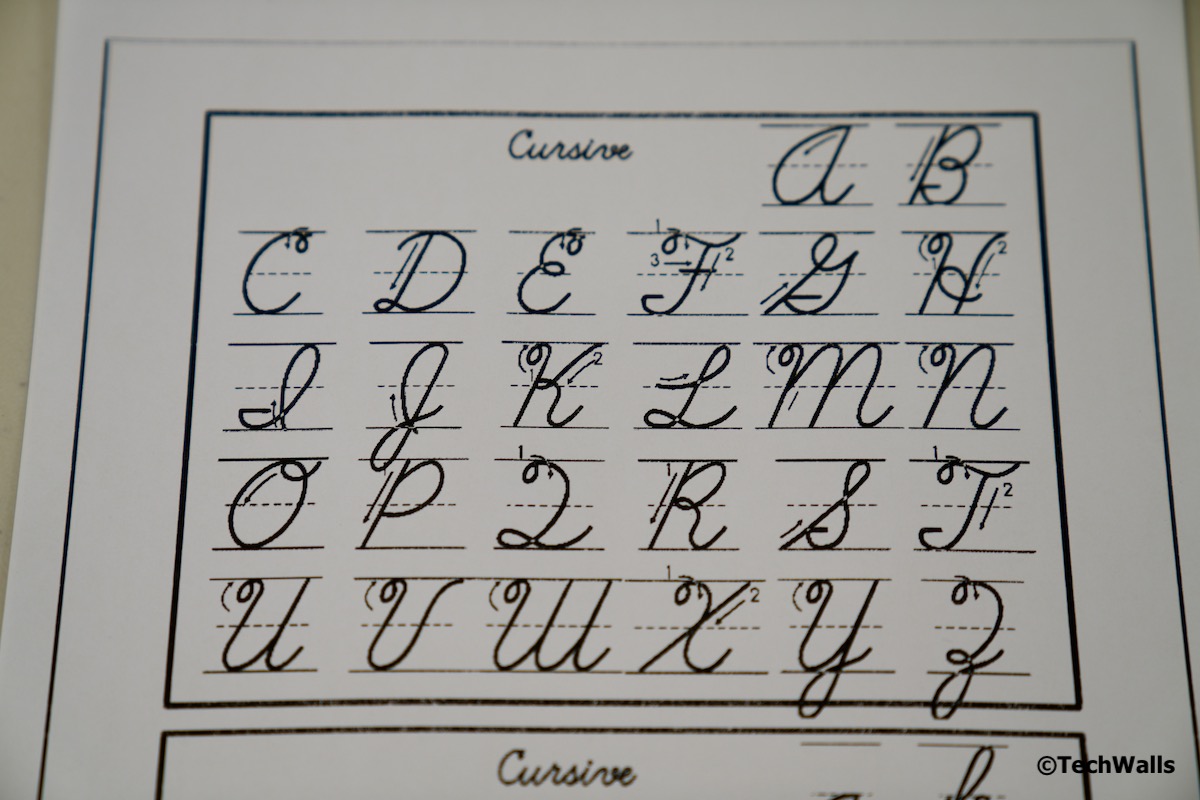 Cursive A B
C D E 1 3 F 2 G H 2
I J K 2 L M N
O P 1 Q 1 R S 1 T 2
U V W 1 X 2 Y Z
Cursive
©TechWalls